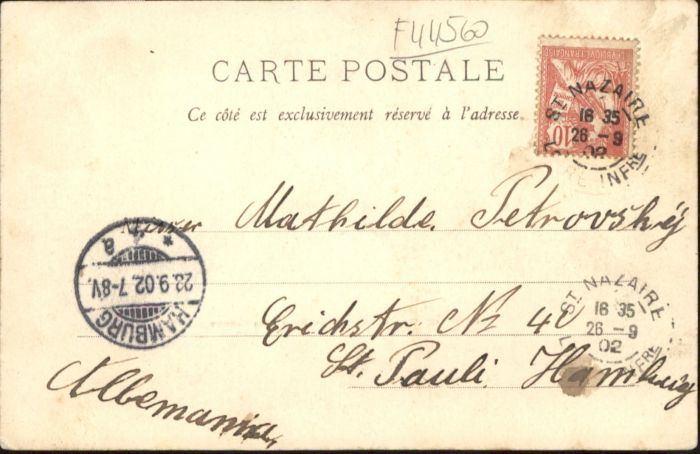 F44560
CARTE POSTALE
Ce côté est exclusivement réservé à l'adresse
RÉPUBLIQUE FRANÇAISE
10
ST NAZAIRE
16 35
26 - 9
02
LOIRE INFRE
Mathilde Petrovskÿ
ST NAZAIRE
16 35
26 - 9
02
INFRE
HAMBURG
28.9.02.7-8V.
* 4 a
Erichstr. No 40
St. Pauli Hamburg
Allemania